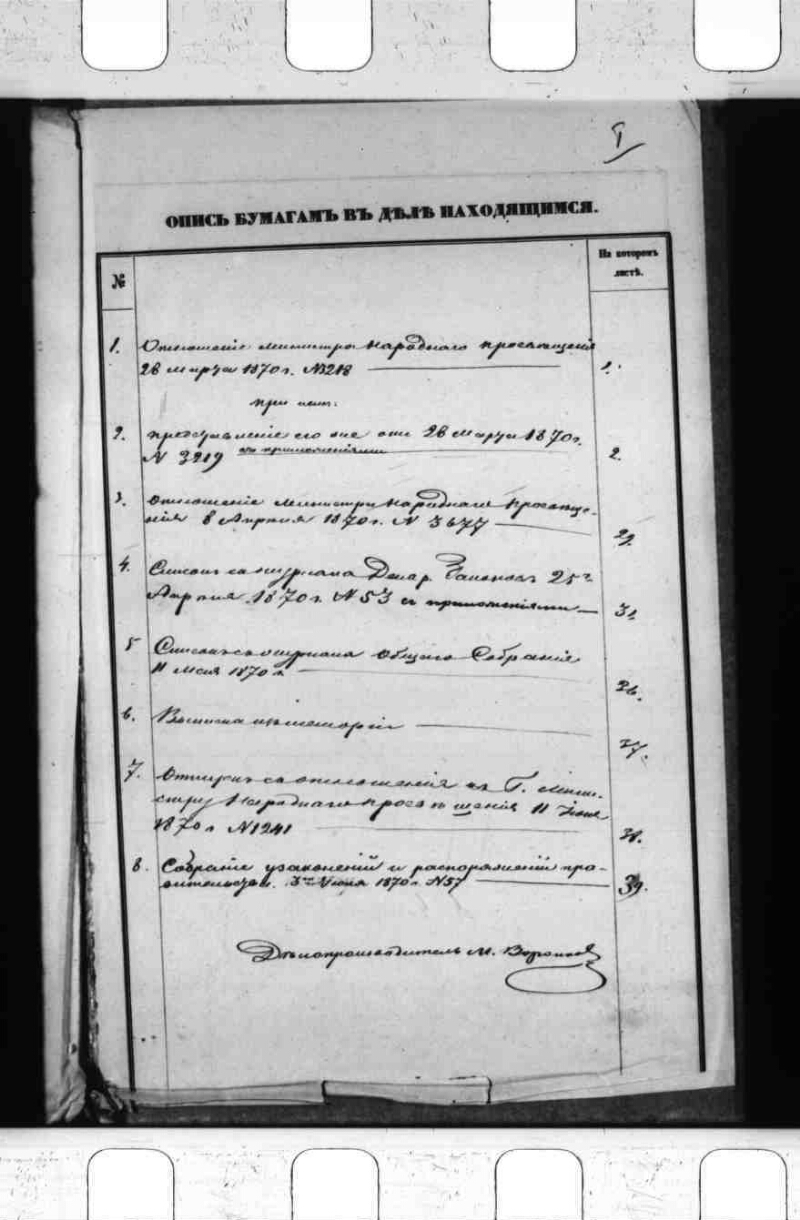 I
ОПИСЬ БУМАГАМЪ ВЪ ДѢЛѢ НАХОДЯЩИМСЯ.
№
На которомъ листѣ.
1. Отношеніе Министра Народнаго Просвѣщенія
28 Марта 1870 г. №3218 1.
при немъ:
2. представленіе его же отъ 28 Марта 1870 г.
N 3219 съ приложеніями 2.
3. Отношеніе Министра Народнаго Просвѣще-
нія 8 Апрѣля 1870 г. N 3677 29.
4. Списокъ съ журнала Депар. Законовъ 25го
Апрѣля 1870 г. N 53 съ приложеніями 31.
5 Списокъ съ журнала Общаго Собранія
11 Мая 1870 г. 36.
6. Выписка изъ меморіи 37.
7. Отпускъ съ отношенія къ Г. Мини-
стру Народнаго Просвѣщенія 11 Іюня
1870 г. N1241 38.
8. Собраніе узаконеній и распоряженій пра-
вительства. Іюня 1870 г. N57 39.
Дѣлопроизводитель М.